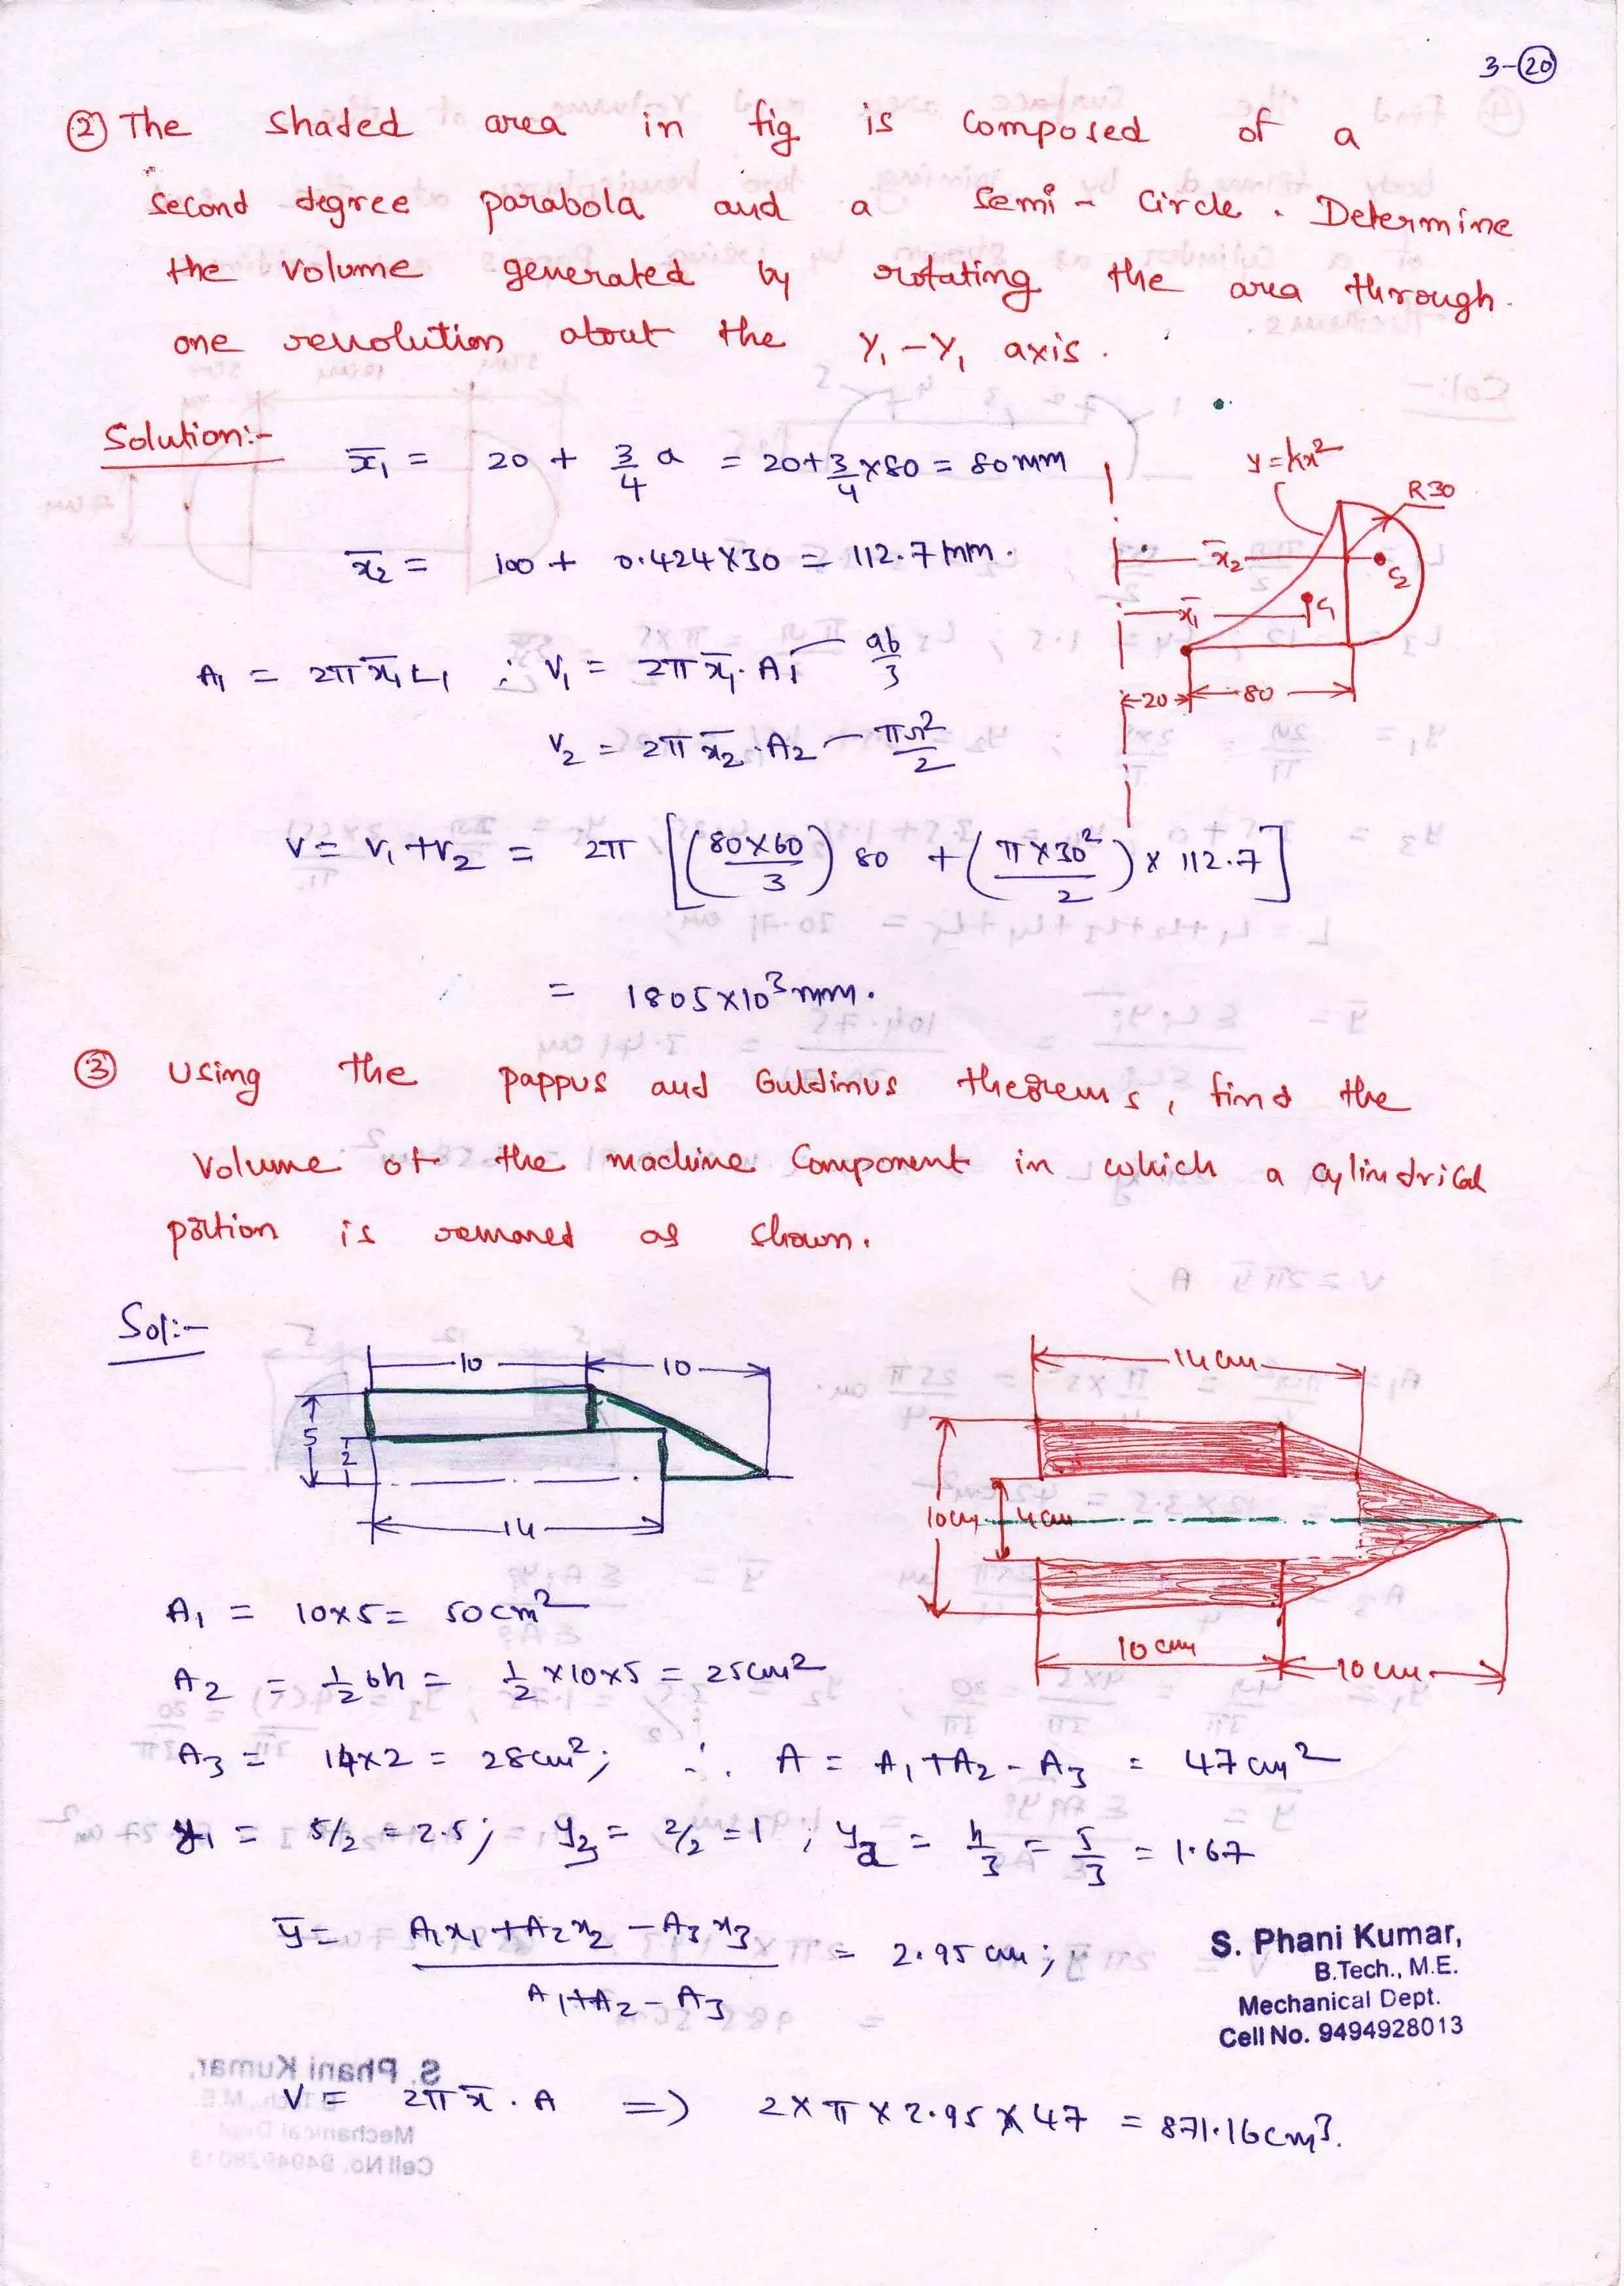 3-20
② The shaded area in fig is composed of a
second degree parabola and a semi - circle. Determine
the volume generated by rotating the area through
one revolution about the Y₁-Y₁ axis.
Solution:- x̄₁ = 20 + 3/4 a = 20+3/4×80 = 80mm
x̄₂ = 100 + 0.424×30 = 112.7mm.
A₁ = 2π x̄₁ L₁ ∴ V₁ = 2π x̄₁. A₁ ab/3
V₂ = 2π x̄₂.A₂ πr²/2
V = V₁+V₂ = 2π [(80×60/3) 80 + (π×30²/2) × 112.7]
= 1805×10³mm.
y=kx²
R30
x̄₂
G₂
x̄₁
G
20
80
③ Using the pappus and Guldinus theorems, find the
Volume of the machine Component in which a cylindrical
portion is removed as shown.
Sol:-
10
10
5
2
14
14cm
10cm
4cm
10cm
10cm
A₁ = 10×5= 50cm²
A₂ = 1/2 bh = 1/2 ×10×5 = 25cm²
A₃ = 14×2 = 28cm²; ∴ A = A₁+A₂-A₃ = 47cm²
y₁ = 5/2 = 2.5; y₃ = 2/2 =1 ; y₂ = h/3 = 5/3 = 1.67
ȳ = A₁x₁+A₂x₂-A₃x₃ / A₁+A₂-A₃ = 2.95cm;
V = 2π x̄ . A => 2×π×2.95×47 = 871.16cm³.
S. Phani Kumar,
B.Tech., M.E.
Mechanical Dept.
Cell No. 9494928013